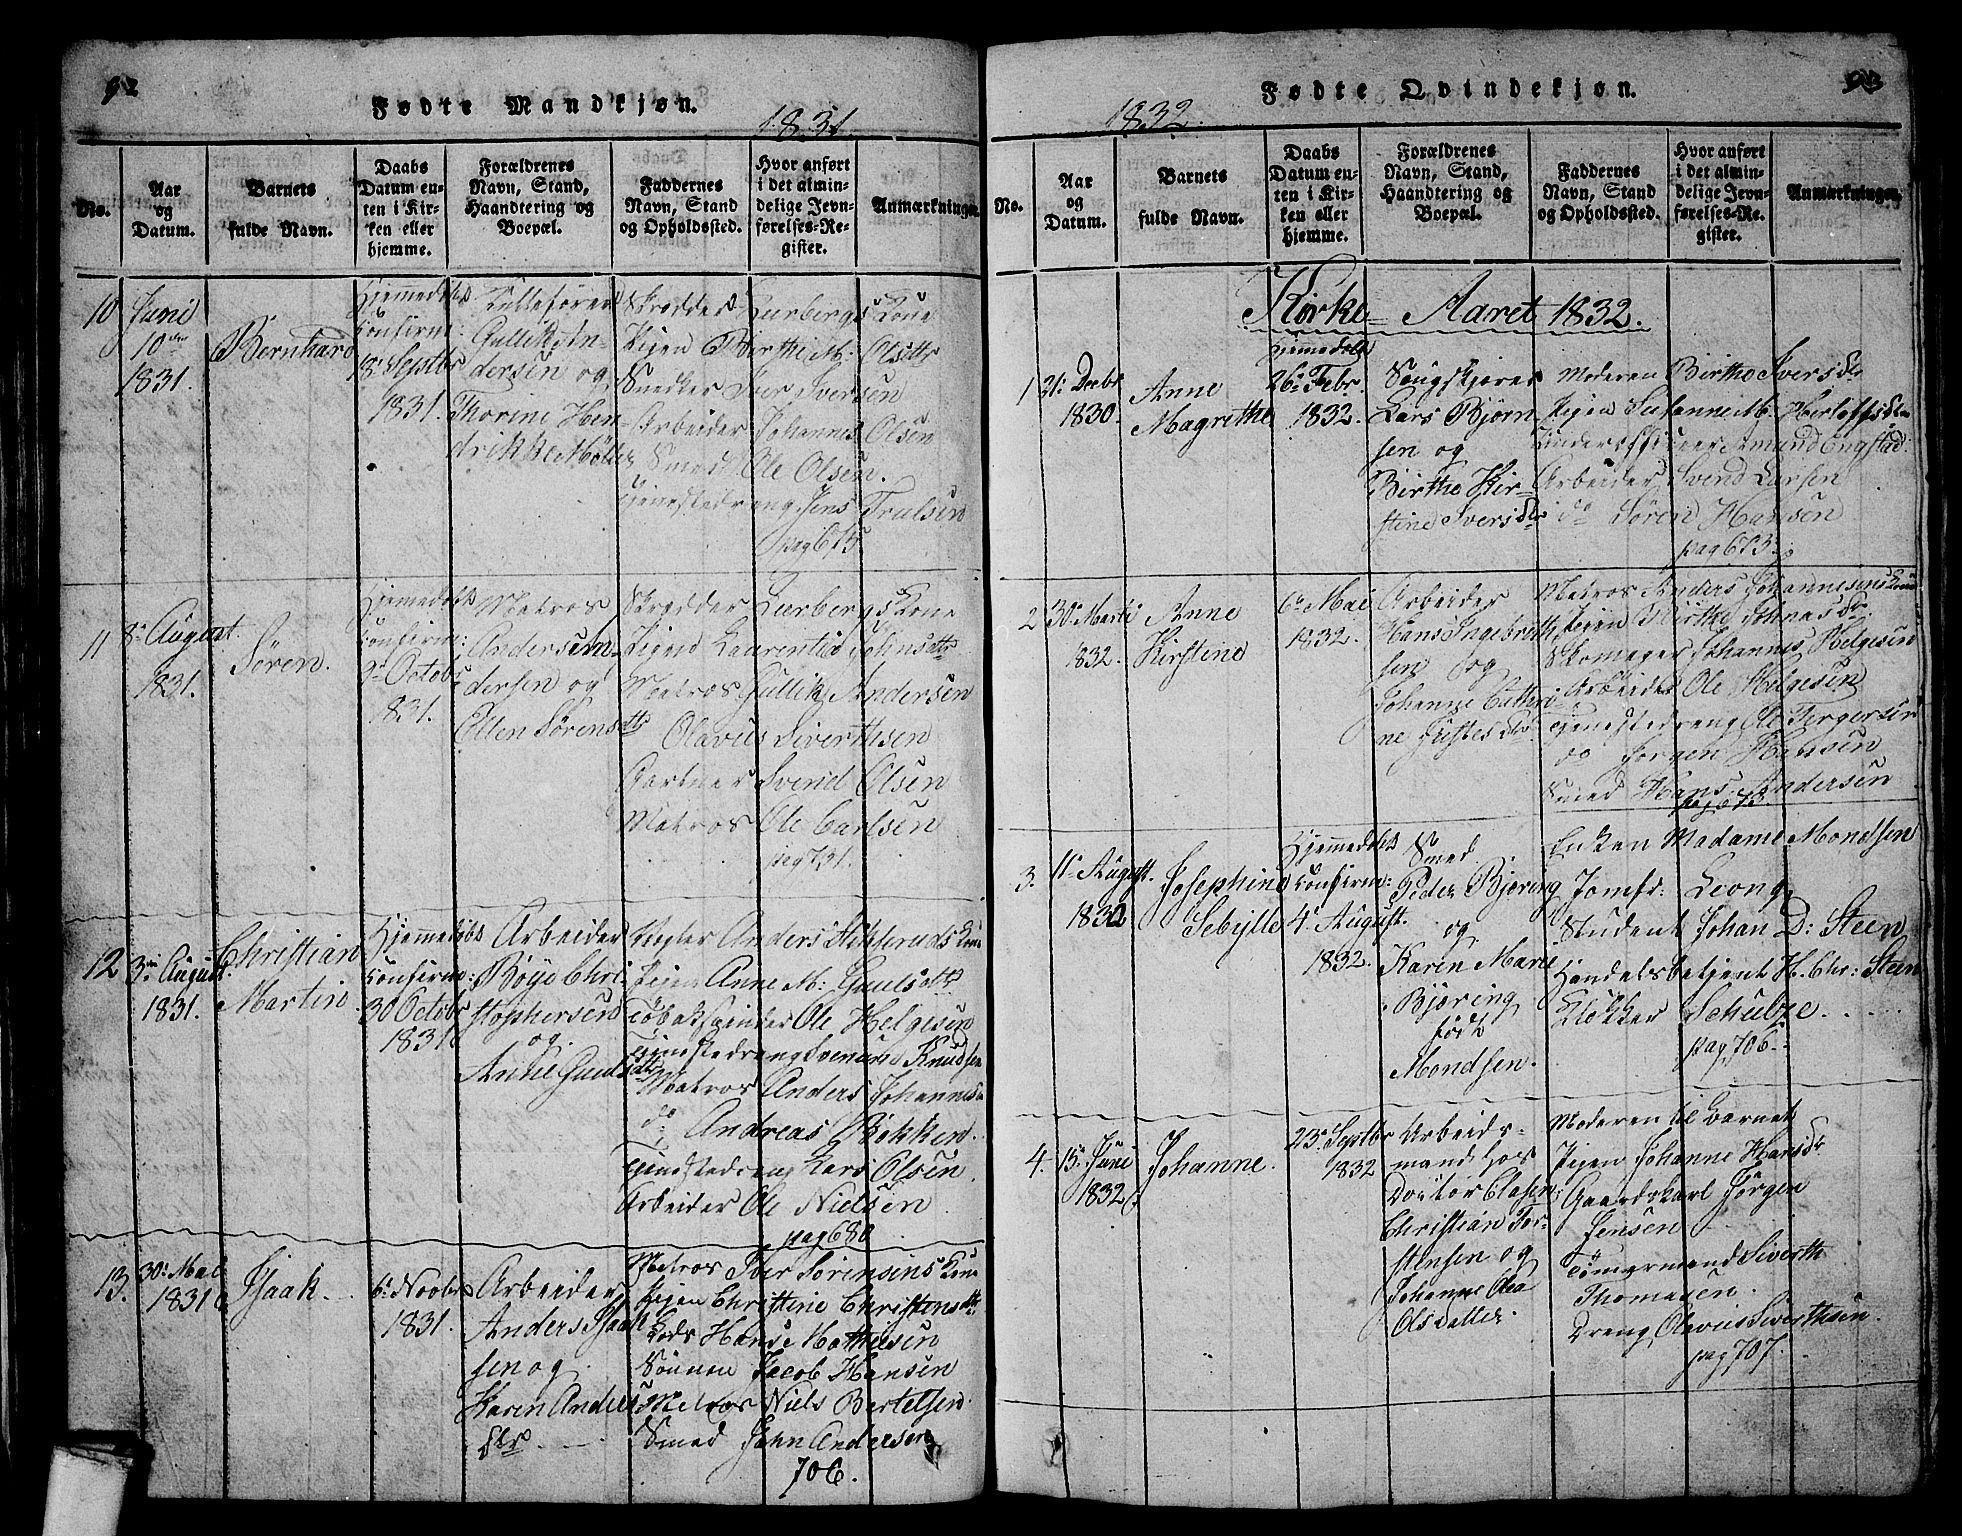 92
Fødte Mandkjøn.
1831.
No.
Aar
og
Datum.
Barnets
fulde Navn.
Daabs
Datum en-
ten i Kir-
ken eller
hjemme.
Forældrenes
Navn, Stand,
Haandtering og
Boepæl.
Faddernes
Navn, Stand
og Opholdssted.
Hvor anført
i det almin-
delige Jevn-
førelses-Re-
gister.
Anmærkninger
10
Juni
10de
1831.
Bernhard
Hjemmedøbt
Confirm:
18 Septbr
1831.
Gullik An-
dersen og
Thorine Hen-
drikke Møller
Skrædder Lurbergs Kone
Pigen Birthe M. Olsdttr
Snedker Iver Iversen
Arbeider Johannes Olsen
Smed Ole Olsen.
Tjenestedreng Jens Trulsen
pag 675.
11
8de August.
1831.
Søren.
Hjemmedøbt
Confirm:
9de Octobr
1831.
Matros
Anders An-
dersen og
Ellen Sørensdttr
Skrædder Lurbergs Kone
Pigen Laurentia Johnsdttr
Matros Gullik Andersen
Olavus Siverthsen
Gartner Svend Olsen
Matros Ole Carlsen
pag 721.
12
3die August.
1831.
Christian
Martin
Hjemmedøbt
Confirm:
30 Octobr
1831
Arbeider
Boye Chri-
stophersen
og
Anne Guulsdttr
Anders Kone
Pigen Anne M: Guulsdttr
Tobakspinder Ole Helgesen
Tjenestedreng Svenund Knudsen
Matros Anders Johannes
do: Andreas Bokken.
Tjenestedreng Lars Olsen
Arbeider Ole Nielsen
pag 680
13.
30: Mai
1831
Isaak.
6: Novbr
1831.
Arbeider
Anders Isaak-
sen og
Karen Anders
dtr
Matros Iver Sørensens Kone
Pigen Christine Christensdttr
Lods Hans Mathiesen
Sønnen Jacob Hansen
Matros Niels Bertelsen
Smed John Andersen
706.
93
Fødte Qvindekjøn.
1832.
No.
Aar
og
Datum.
Barnets
fulde Navn.
Daabs
Datum en-
ten i Kir-
ken eller
hjemme.
Forældrenes
Navn, Stand,
Haandtering og
Boepæl.
Faddernes
Navn, Stand
og Opholdssted.
Hvor anført
i det almin-
delige Jevn-
førelses-Re-
gister.
Anmærkninger
Kirke-Aaret 1832.
1
31: Decbr
1830.
Anne
Magrethe
Hjemmedøbt
26: Febr.
1832.
Lars Bjørn-
sen og
Birthe Kir-
stine Iversdtr
Moderen Birthe Iversdtr
Pigen Susanne M. Herlofsdtr
Underofficeer Amund Engstad.
Arbeider Svend Larsen
do Søren Hansen
pag 673.
2
30: Marti
1832.
Anne
Kirstine
6: Mai
1832.
Arbeider
Hans Ingebreth-
sen og
Johanne Cathri-
ne Justesdtr
Matros Anders Johannesens Kone
Pigen Birthe Johnasdtr
Skomager Johannes Helgesen
Arbeider Ole Helgesen
Tjenestedreng Ole Tergersen
do Jørgen Hansen
Smed Hans Andersen
3.
11: August.
1832
Josephine
Sebylle
Hjemmedøbt
Confirm:
4: August.
1832.
Smed
Peder Bjøring
og
Karen Marie
Bjøring
født
Mondsen.
Enken Madame Mondsen
Jomfr: Leong
Student Johan D: Steen
Handelsbetjent H. Chr: Steen
Klokker Schulze.
pag. 706.
4.
15: Juni
1832
Johanne.
23: Septbr
1832
Arbeids-
mand hos
Doctor Clasen
Christian Tor-
stensen og
Johanne Olea
Olsdatter.
Moderen til Barnet
Pigen Johanne Hansdtr
Gaardskarl Jørgen
Jensen
Tømermand Siverth
Thomasen.
Dreng Olavus Siverthsen.
pag 707.